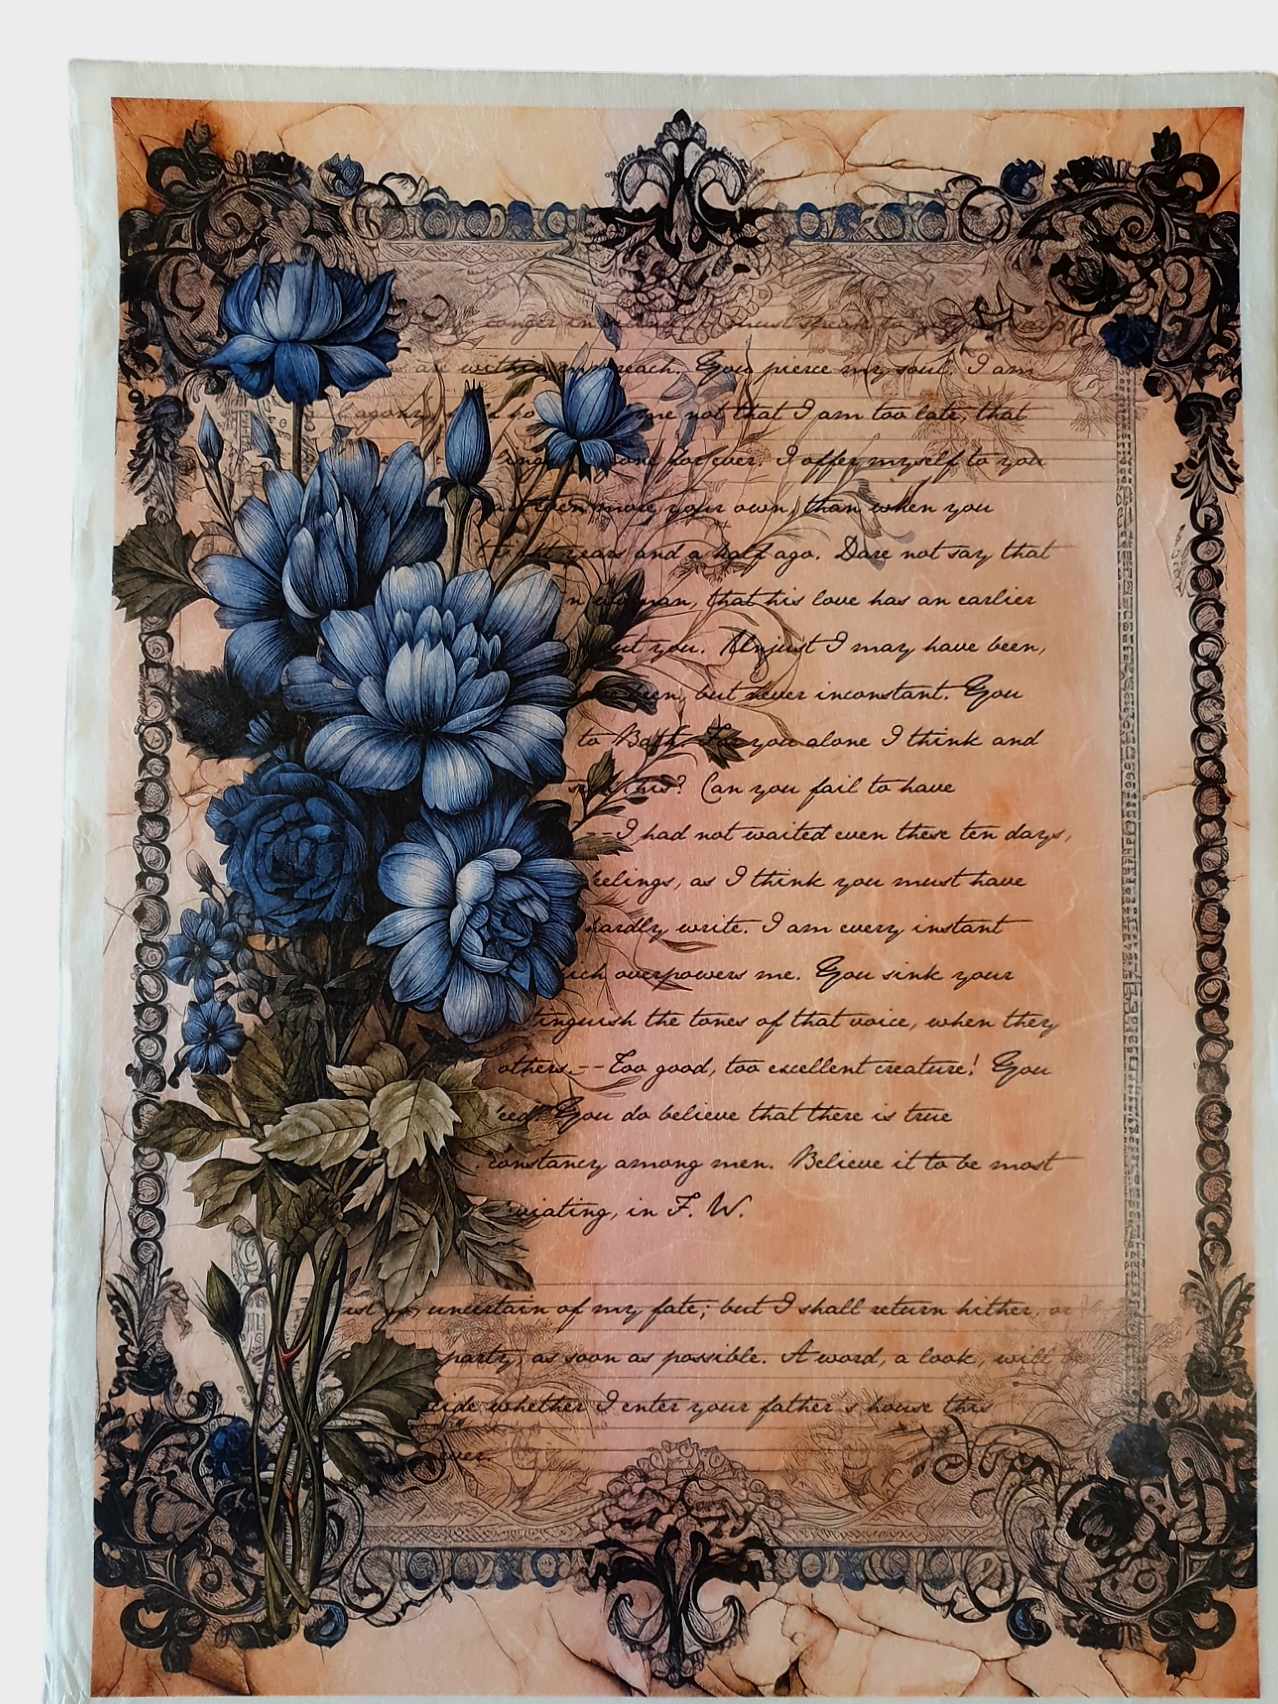 longer in must speak to
are within my reach. You pierce my soul. I am
agony, me not that I am too late, that
gone for ever. I offer myself to you
even more your own, than when you
years and a half ago. Dare not say that
woman, that his love has an earlier
you. Unjust I may have been,
been, but never inconstant. You
to Bath. For you alone I think and
this? Can you fail to have
--I had not waited even these ten days,
feelings, as I think you must have
hardly write. I am every instant
overpowers me. You sink your
tinguish the tones of that voice, when they
others.--Too good, too excellent creature! You
eed. You do believe that there is true
constancy among men. Believe it to be most
viating, in F. W.
ust go, uncertain of my fate; but I shall return hither, or
party, as soon as possible. A word, a look, will
cide whether I enter your father's house this